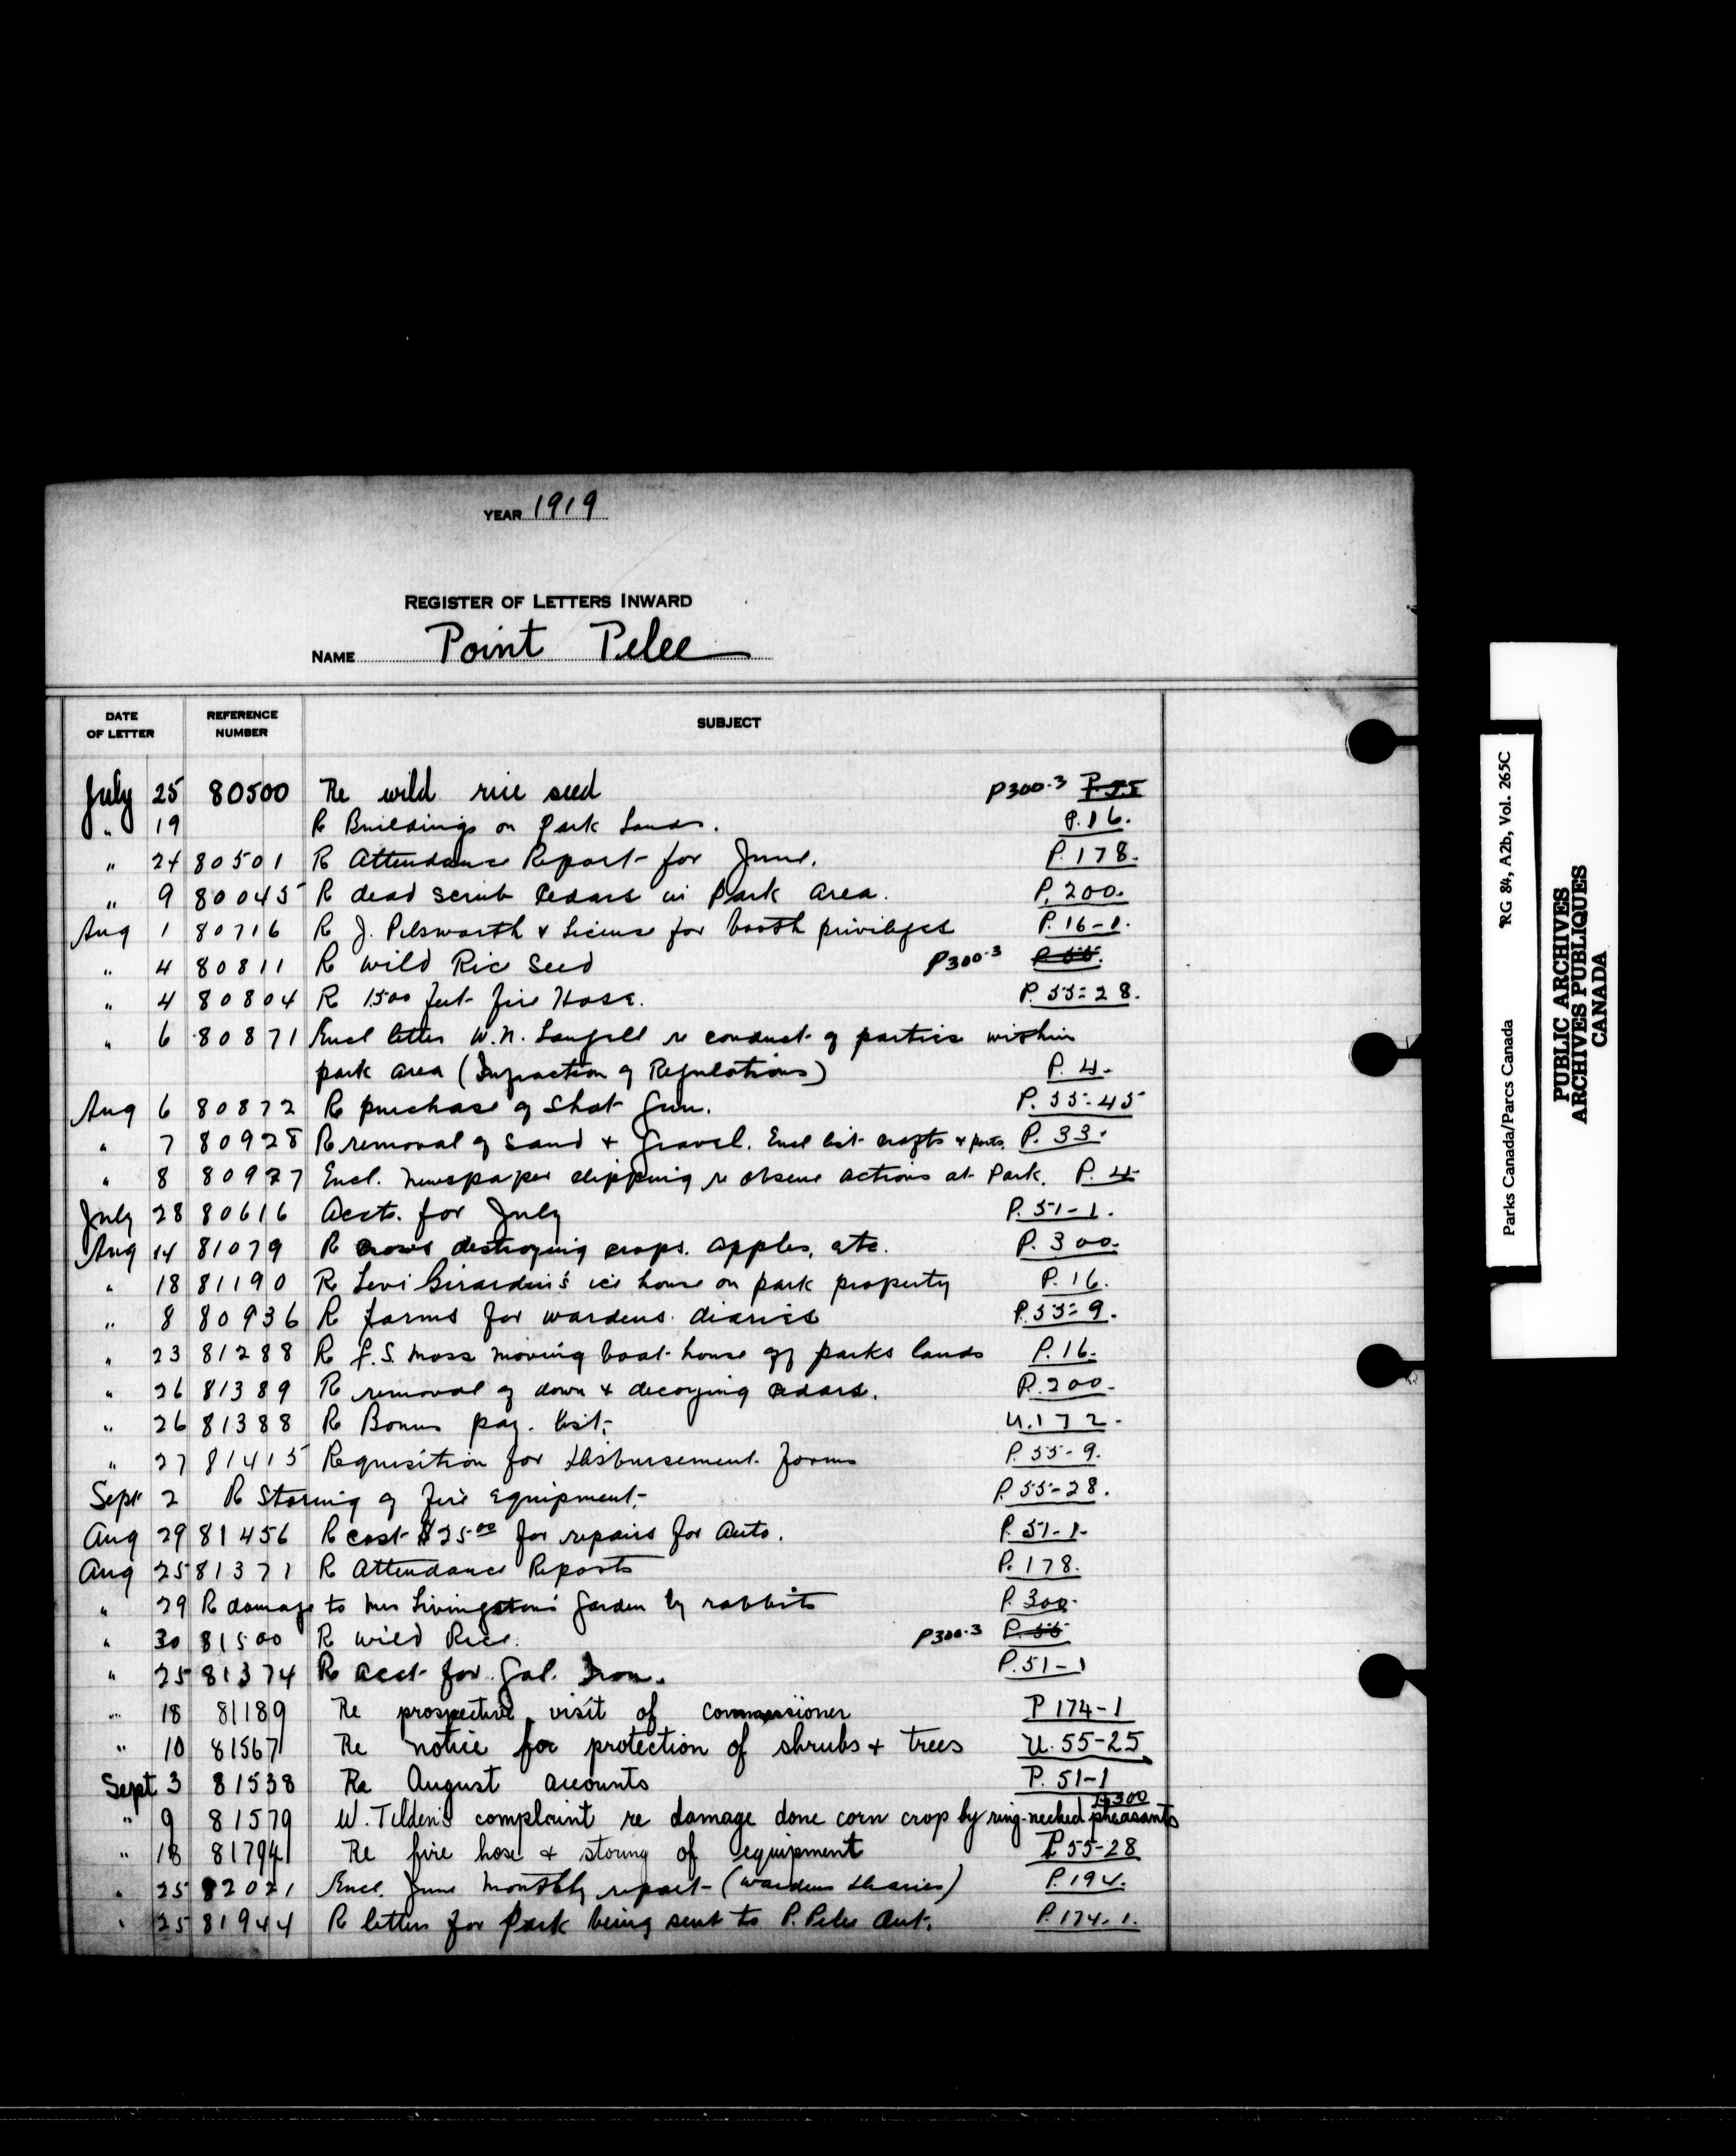 YEAR 1919
REGISTER OF LETTERS INWARD
NAME Point Pelee
DATE OF LETTER REFERENCE NUMBER SUBJECT
July 25 80500 Re wild rice seed P300-3 P.55
" 19 R Buildings on Park Lands. P.16.
" 24 80501 R Attendance Report for June. P.178.
" 9 80045 R dead scrub Cedars in Park area. P.200.
Aug 1 80716 R J. Pilsworth & License for booth privileges P.16-1.
" 4 80811 R Wild Rice Seed P300-3 P.55.
" 4 80804 R 1500 feet fire Hose. P.55-28.
" 6 80871 Encl letter W.N. re conduct of parties within
park area (Infraction of Regulations) P. 4.
Aug 6 80872 R purchase of Shot Gun. P. 55-45
" 7 80928 R removal of sand & gravel. Encl list crafts & ports. P. 33.
" 8 80977 Encl. Newspaper clipping re obscene actions at Park. P. 4
July 28 80616 Accts. for July P.51-1.
Aug 14 81079 R crows destroying crops. apples, etc. P.300.
" 18 81190 R Levi Girardin's ice house on park property P.16.
" 8 80936 R forms for wardens diaries P.55-9.
" 23 81288 R F.S. Moss moving boat-house off parks lands P.16.
" 26 81389 R removal of down & decaying cedars. P.200.
" 26 81388 R Bonus pay. list. U.172.
" 27 81415 Requisition for disbursement forms P.55-9.
Sept 2 R Storing of fire equipment. P.55-28.
Aug 29 81456 R cost $25.00 for repairs for Auto. P.51-1.
Aug 25 81371 R Attendance Reports P.178.
" 29 R damage to Mrs Livingston's Garden by rabbits P.300.
" 30 81500 R Wild Rice. P300-3 P.55
" 25 81374 R acct for Gal. Iron. P.51-1
" 18 81189 Re prospective visit of commissioner P 174-1
" 10 81567 Re notice for protection of shrubs & trees U. 55-25
Sept 3 81538 Re August accounts P. 51-1
" 9 81579 W. Tilden's complaint re damage done corn crop by ring-necked pheasants P.300
" 18 81794 Re fire hose & storing of equipment P 55-28
" 25 82021 Encl. June Monthly report (Wardens diaries) P.194.
" 25 81944 R letters for Park being sent to P. Pelee Ont. P.174-1.
Parks Canada/Parcs Canada RG 84, A2b, Vol. 265C
PUBLIC ARCHIVES
ARCHIVES PUBLIQUES
CANADA